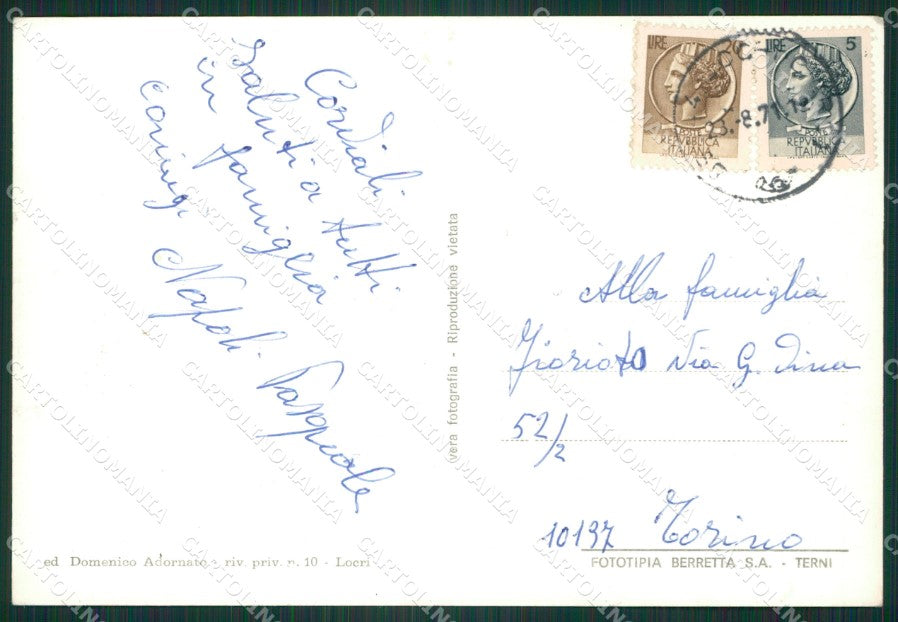 Cordiali
saluti a tutti
in famiglia
coniugi Napoli Pasquale
vera fotografia - Riproduzione vietata
LIRE 20
POSTE
REPVBBLICA
ITALIANA
LIRE 5
POSTE
REPVBBLICA
ITALIANA
23.-8.71
Alla famiglia
Via G. Dina
52/2
10137 Torino
ed Domenico Adornato - riv. priv. n. 10 - Locri
FOTOTIPIA BERRETTA S.A. - TERNI
CARTOLINOMANIA